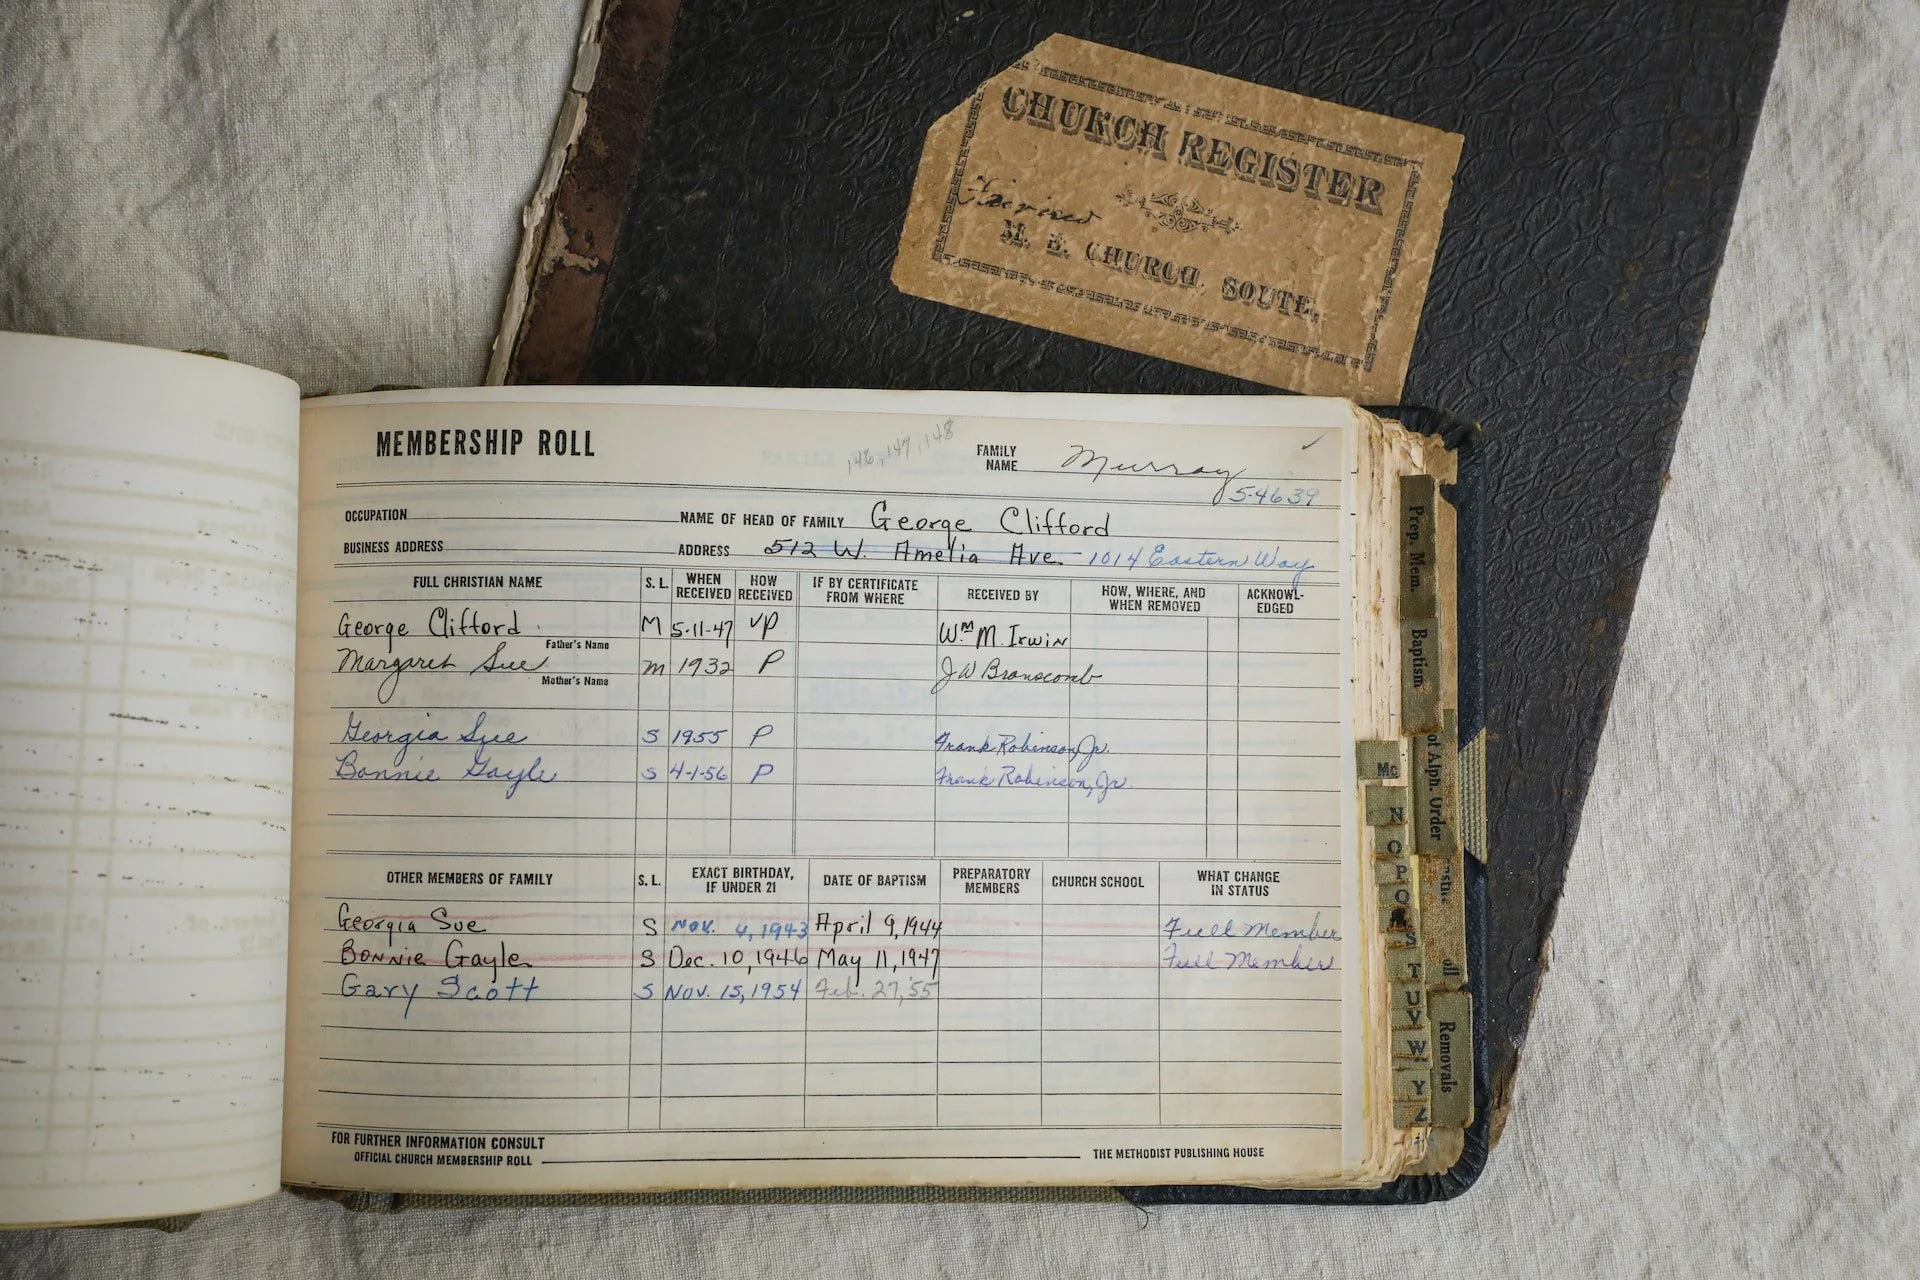 CHURCH REGISTER
M. E. CHURCH, SOUTH.
MEMBERSHIP ROLL
146, 147, 148
FAMILY NAME Murray
5-4639
OCCUPATION NAME OF HEAD OF FAMILY George Clifford
BUSINESS ADDRESS ADDRESS 512 W. Amelia Ave. 1014 Eastern Way
FULL CHRISTIAN NAME S. L. WHEN RECEIVED HOW RECEIVED IF BY CERTIFICATE FROM WHERE RECEIVED BY HOW, WHERE, AND WHEN REMOVED ACKNOWL-EDGED
George Clifford M 5-11-47 VP Wm M. Irwin
Father's Name
Margaret Sue m 1932 P J W Branscomb
Mother's Name
Georgia Sue S 1955 P Frank Robinson, Jr.
Bonnie Gayle S 4-1-56 P Frank Robinson, Jr.
OTHER MEMBERS OF FAMILY S. L. EXACT BIRTHDAY, IF UNDER 21 DATE OF BAPTISM PREPARATORY MEMBERS CHURCH SCHOOL WHAT CHANGE IN STATUS
Georgia Sue S Nov. 4, 1943 April 9, 1944 Full Member
Bonnie Gayle S Dec. 10, 1946 May 11, 1947 Full Member
Gary Scott S Nov. 15, 1954 Feb. 27, '55
FOR FURTHER INFORMATION CONSULT
OFFICIAL CHURCH MEMBERSHIP ROLL THE METHODIST PUBLISHING HOUSE
Prep. Mem.
Baptism
of Alph. Order
Removals
Mc
N
O
P
Q
S
T
U
V
W
Y
Z